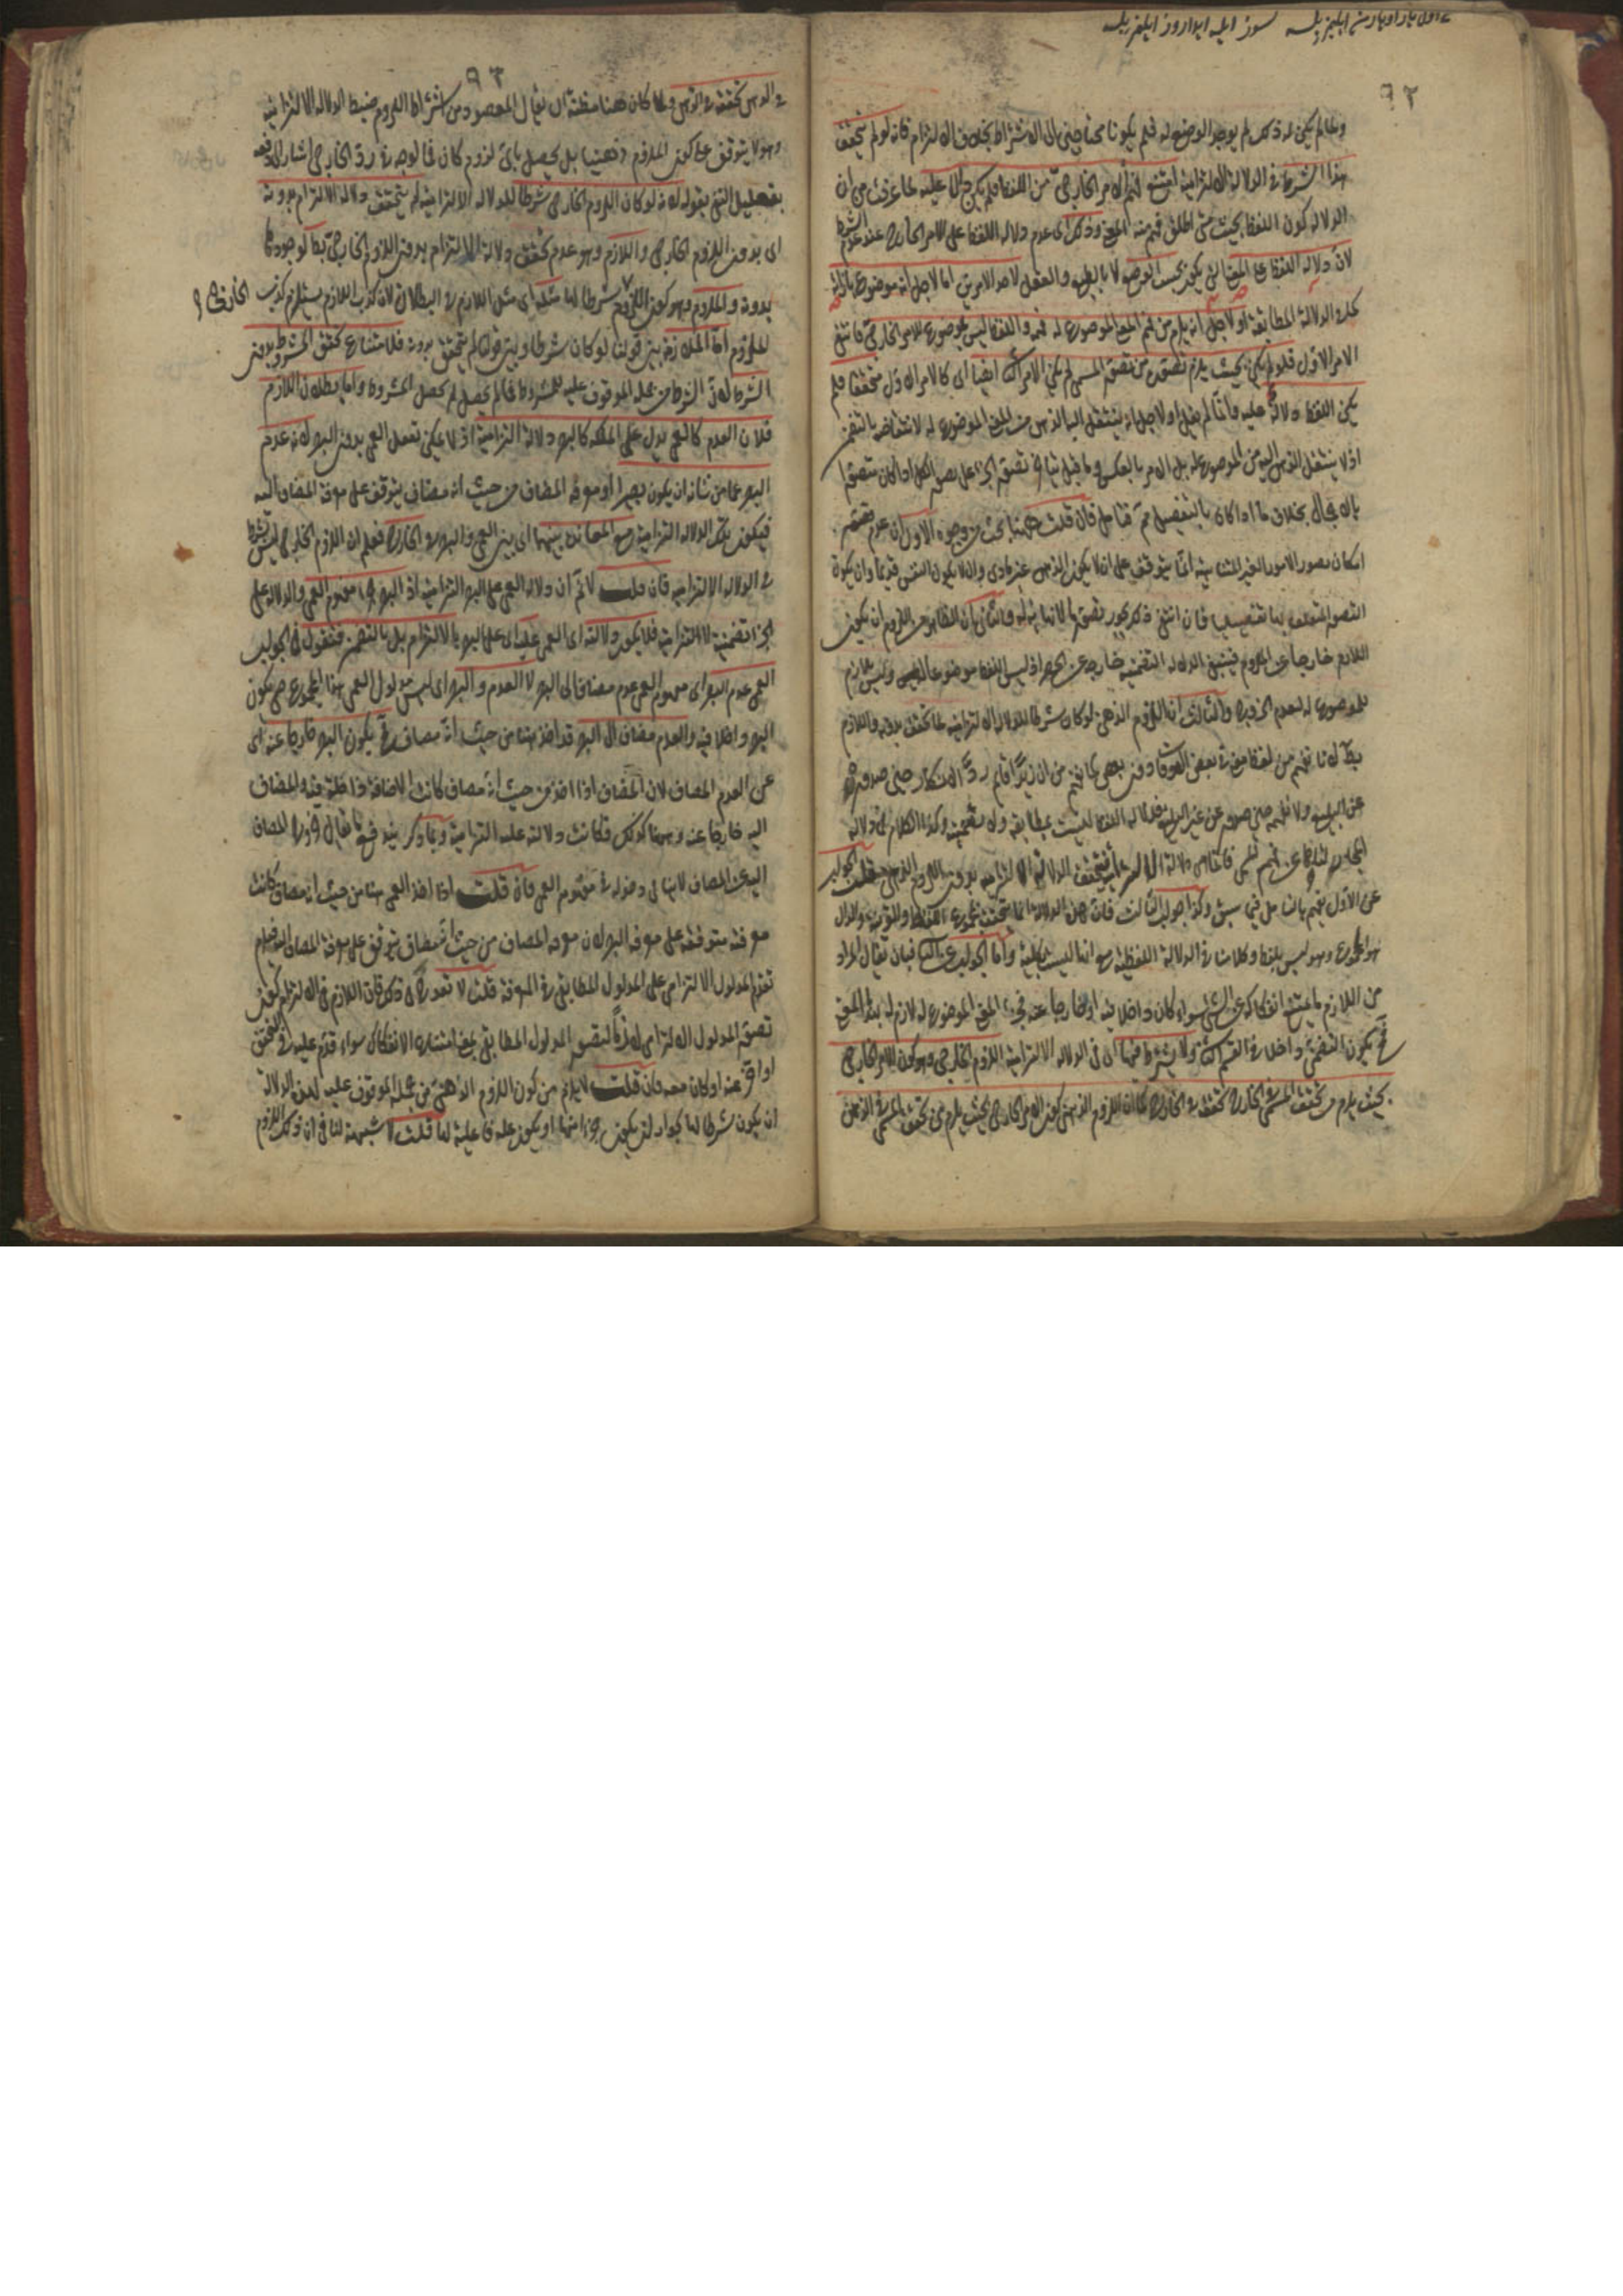 ٩٢
ولما لم يكن له ذلك لم يوجد الوضع له فلم يكونا محتاجين الى الاشتراط بخلاف الالتزام فانه لو لم يتحقق
هذا الشرط في الدلالة الالتزامية امتنع فهم الامر الخارجي من اللفظ فلم يكن دالا عليه لما عرفت من ان
الدلالة كون اللفظ بحيث متى اطلق فهم منه المعنى وذلك اى عدم دلالة اللفظ على الامر الخارج عند عدم الشرط
لان دلالة اللفظ على المعنى التي يكون بحسب الوضع لا بالطبع والعقل لاحد الامرين اما لاجل انه موضوع بازائه
كما في الدلالة المطابقة او لاجل انه يلزم من فهم المعنى الموضوع له فهمه واللفظ ليس بموضوع للامر الخارجي فانتفى
الامر الاول فلو لم يكن بحيث يلزم تصوره من تصور المسمى لم يكن الامر الثاني ايضا اى كالامر الاول متحققا فلم
يكن اللفظ دلالة عليه وانما لم يقل او لاجل انه ينتقل اليه الذهن من المعنى الموضوع له لانتقاضه بالتضمن
اذ لا ينتقل الذهن اليه من الموضوع له بل الامر بالعكس وما قيل تنافى تصور الجزء على تصور الكل اذا كان متصورا
بالاجمال بخلاف ما اذا كان بالتفصيل ثم فتأمل فان قلت ههنا بحث من وجوه الاول ان عدم
امكان تصور الامور الغير المتناهية انما يتوقف على ان لا يكون الذهن غير مادى وان لا يكون النفس قديما وان يكون
التصور المتعلق بها تفصيليا فان انتفى ذلك يجوز تصور ما لا نهاية له والثانى ان الظاهر من اللزوم ان يكون
اللازم خارجا عن الملزوم فيبقى الدلالة التضمنية خارجة عن الحصر اذ ليس اللفظ موضوعا لها وليس بلازم
للموضوع له لعدم الخروج والثالث ان اللزوم الذهنى لو كان شرطا للدلالة الالتزامية لما تحقق بدونه واللازم
بط لانا نفهم من لفظ معنى في بعض الاوقات دون بعض كما نفهم من ان زيدا قائم رد الانكار حين صدوره
عن البليغ ولا نفهمه حين صدوره عن غير البليغ فدلالة اللفظ ليست بمطابقة ولا تضمنية وكذا الكلام في دلالة
عن الاول يفهم بالتأمل فيما سبق وكذا جواب الثالث فان هذه الدلالة انما تحققت بمجموع اللفظ والقرينة والدال
هو المجموع وهو ليس بلفظ وكلامنا في الدلالة اللفظية مع انها ليست بكلية واما الجواب عن الثانى فبان يقال المراد
من اللازم ما يمتنع انفكاكه عن الشئ سواء كان داخلا فيه او خارجا عنه فجزء المعنى الموضوع له لازم له بهذا المعنى
فح يكون التضمن داخلا في القسم الثانى ولا يشترط فيها اى في الدلالة الالتزامية اللزوم الخارجى وهو كون الامر الخارجى
بحيث يلزم من تحقق المسمى في الخارج تحققه في الخارج كما ان اللزوم الذهنى كون الامر الخارجى بحيث يلزم من تحقق المسمى في الذهن
٩٣
في الذهن تحققه في الذهن ولما كان ههنا مظنة ان يقال المقصود من اشتراط اللزوم ضبط الدلالة الالتزامية
وهو لا يتوقف على كون الملزوم ذهنيا بل يحصل بأى لزوم كان فما الوجه في رد الخارجى اشار الى دفعه
بتعليل النفى بقوله لانه لو كان اللزوم الخارجى شرطا للدلالة الالتزامية لم يتحقق دلالة الالتزام بدونه
اى بدون اللزوم الخارجى واللازم وهو عدم تحقق دلالة الالتزام بدون اللزوم الخارجى بط لوجودها
بدونه والملزوم وهو كون اللزوم شرطا لها مثله اى مثل اللازم في البطلان لان كذب اللازم يستلزم كذب
الخارجى
الملزوم اما الملازمة بين قولنا لو كان شرطا وبين قوله لم يتحقق بدونه فلامتناع تحقق المشروط بدون
الشرط لان الشرط من جملة الموقوف عليه للمشروط فما لم يحصل لم يحصل المشروط واما بطلان اللازم
فلان العدم كالعمى يدل على الملكة كالبصر دلالة التزامية اذ لا يمكن تعقل العمى بدون البصر لانه عدم
البصر عما من شانه ان يكون بصيرا ومعرفة المضاف من حيث انه مضاف يتوقف على معرفة المضاف اليه
فيكون تلك الدلالة التزامية مع المعاندة بينهما اى بين العمى والبصر في الخارج فعلم ان اللزوم الخارجى ليس بشرط
في الدلالة الالتزامية فان قلت لا نم ان دلالة العمى على البصر التزامية اذ البصر جزء مفهوم العمى والدلالة على
الجزء تضمنية لا التزامية فلا يكون دلالته اى العمى عليه اى على البصر بالالتزام بل بالتضمن فنقول في الجواب
العمى عدم البصر اى مفهوم العمى عدم مضاف الى البصر لا العدم والبصر اى ليس مدلول العمى هذا المجموع حتى يكون
البصر داخلا فيه والعدم مضاف الى البصر قد اخذ ههنا من حيث انه مضاف فح يكون البصر خارجا عنه اى
عن العدم المضاف لان المضاف اذا اخذ من حيث انه مضاف كانت الاضافة داخلة فيه والمضاف
اليه خارجا عنه وههنا كذلك فكانت دلالته عليه التزامية وبما ذكر يندفع ما يقال
فان قلت اذا اخذ العمى ههنا من حيث انه مضاف كانت
معرفته متوقفة على معرفة البصر لان معرفة المضاف من حيث انه مضاف يتوقف على معرفة المضاف اليه فيلزم
تقدم المدلول الالتزامى على المدلول المطابقى في المعرفة قلت لا
تصور المدلول الالتزامى لازما لتصور المدلول المطابقى بمعنى امتناع الانفكاك سواء قدم عليه في التحقق
او اخر عنه او كان معه فان قلت لا يلزم من كون اللزوم الذهنى من جملة الموقوف عليه لهذه الدلالة
ان يكون شرطا لها لجواز ان يكون جزءا منها او يكون علة فاعلية لها قلت لا شبهة لنا في ان ذلك اللزوم